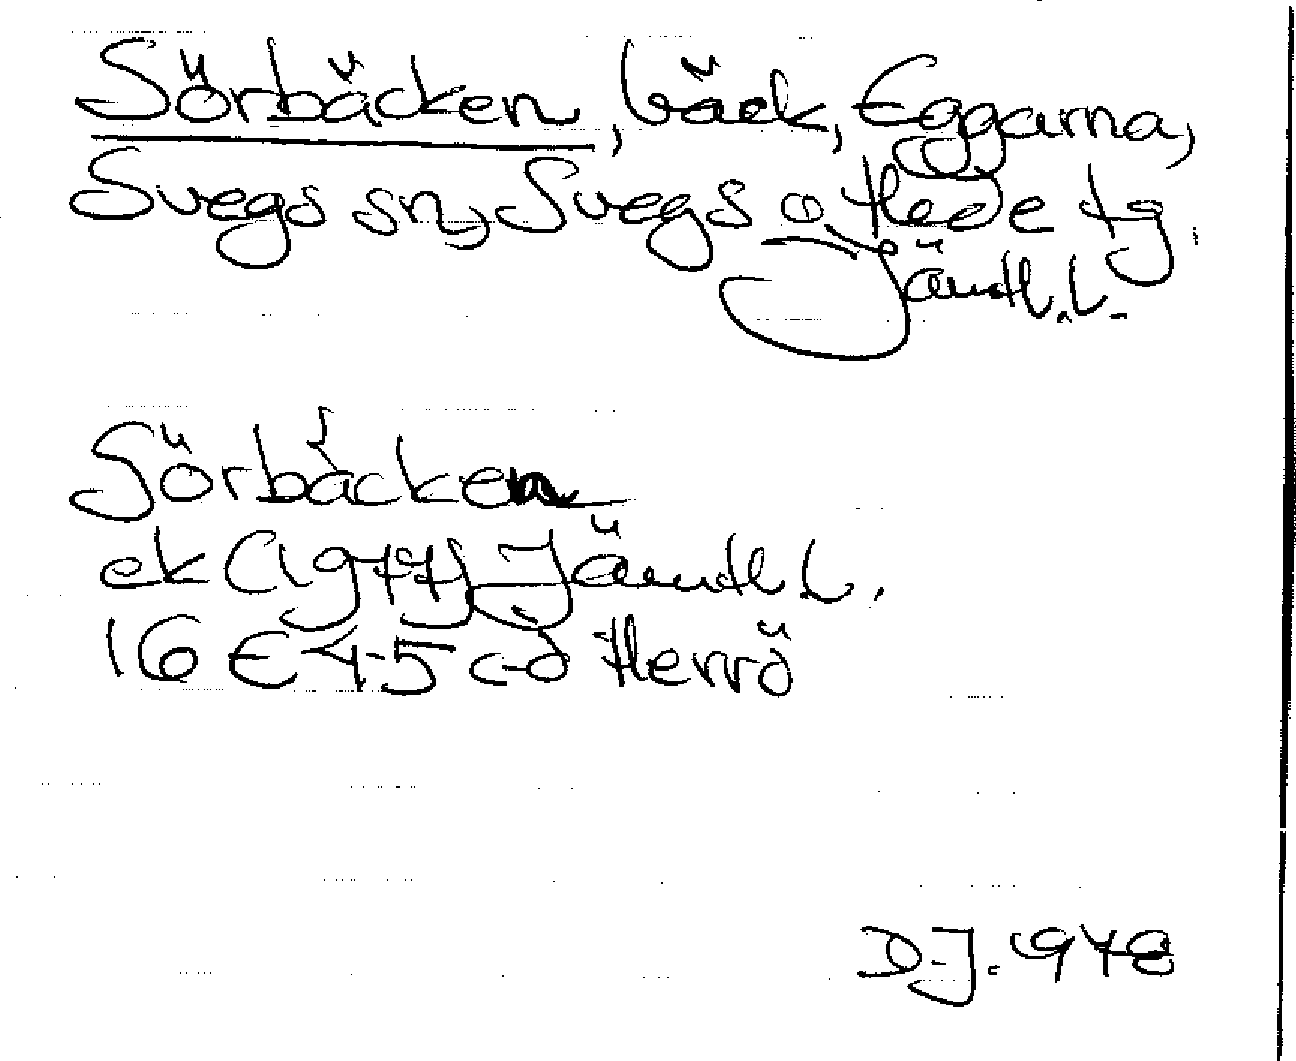 Sörbäcken, bäck, Eggarna,
Svegs sn, Svegs o Hede tg
Jämtl. l.
Sörbäcken
ek (1977) Jämtl l.
16 E 4-5 c-d Herrö
D.J. 1978